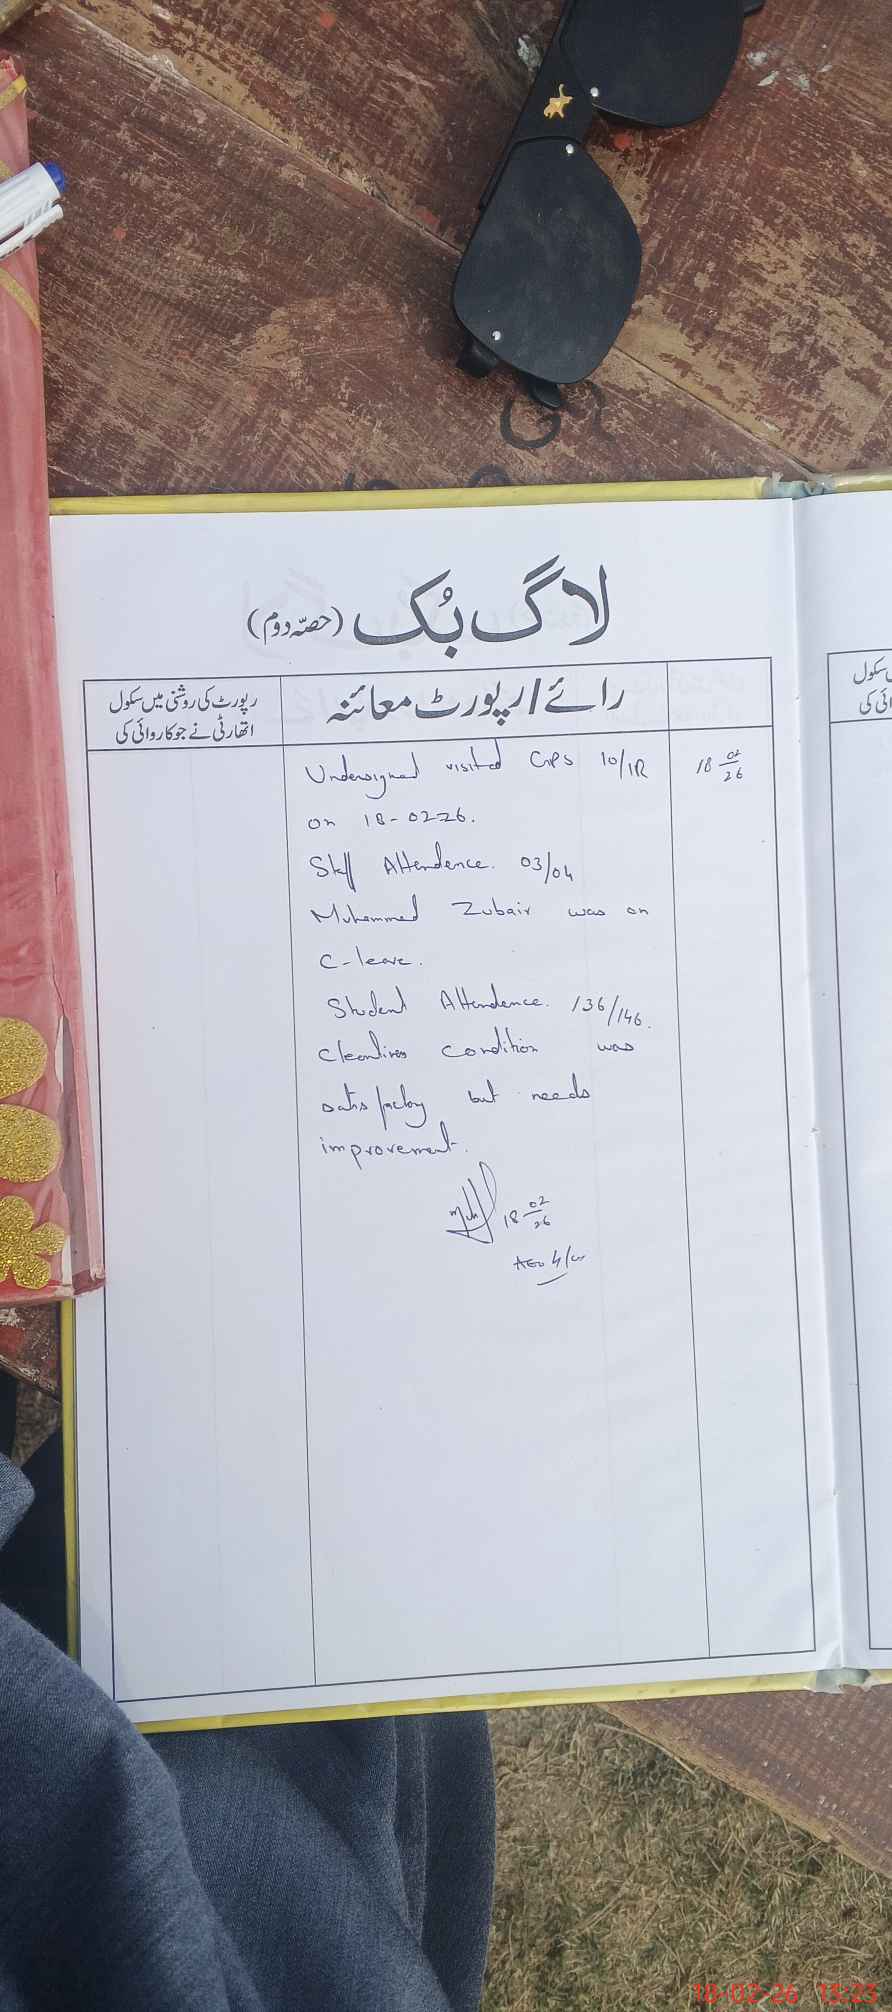 لاگ بُک (حصّہ دوم)
رپورٹ کی روشنی میں سکول
اتھارٹی نے جو کاروائی کی
رائے/رپورٹ معائنہ
Undersigned visited GPS 10/1R
18 02/26
on 18-02-26.
Staff Attendence. 03/04
Muhammed Zubair was on
C-leave.
Student Attendence. 136/146.
Cleanlines condition was
satisfactory but needs
improvement.
18 02/26
AEO
سکول
18-02-26 13:23